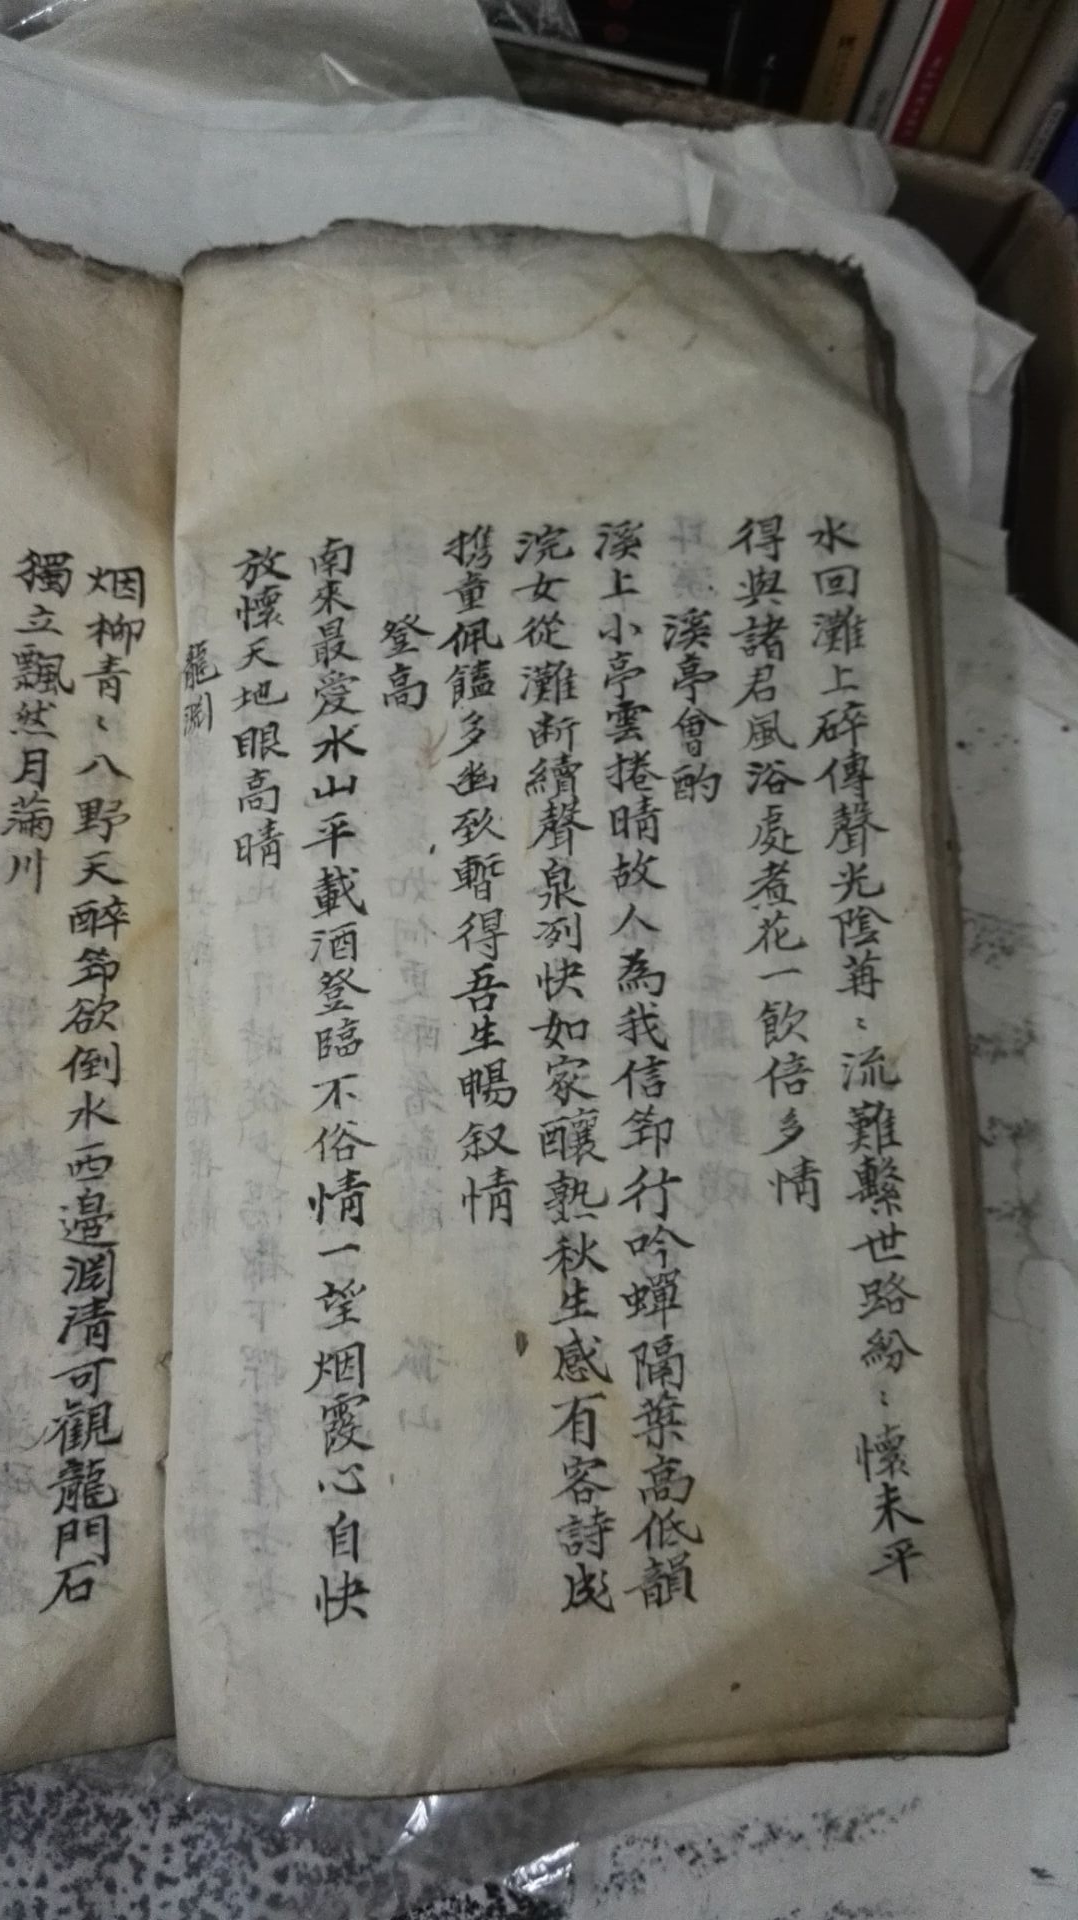 水回灘上碎傳聲光陰苒〻流難繫世路紛〻懷未平
得與諸君風浴處煮花一飲倍多情
溪亭會酌
溪上小亭雲捲晴故人為我信筇行吟蟬隔葉高低韻
浣女從灘断續聲泉冽快如家釀熟秋生感有客詩成
携童佩饁多幽致暫得吾生暢叙情
登高
南來最愛水山平載酒登臨不俗情一望烟霞心自快
放懷天地眼高晴
龍淵
烟柳青〻八野天醉筇欲倒水西邉淵清可觀龍門石
獨立飄然月滿川